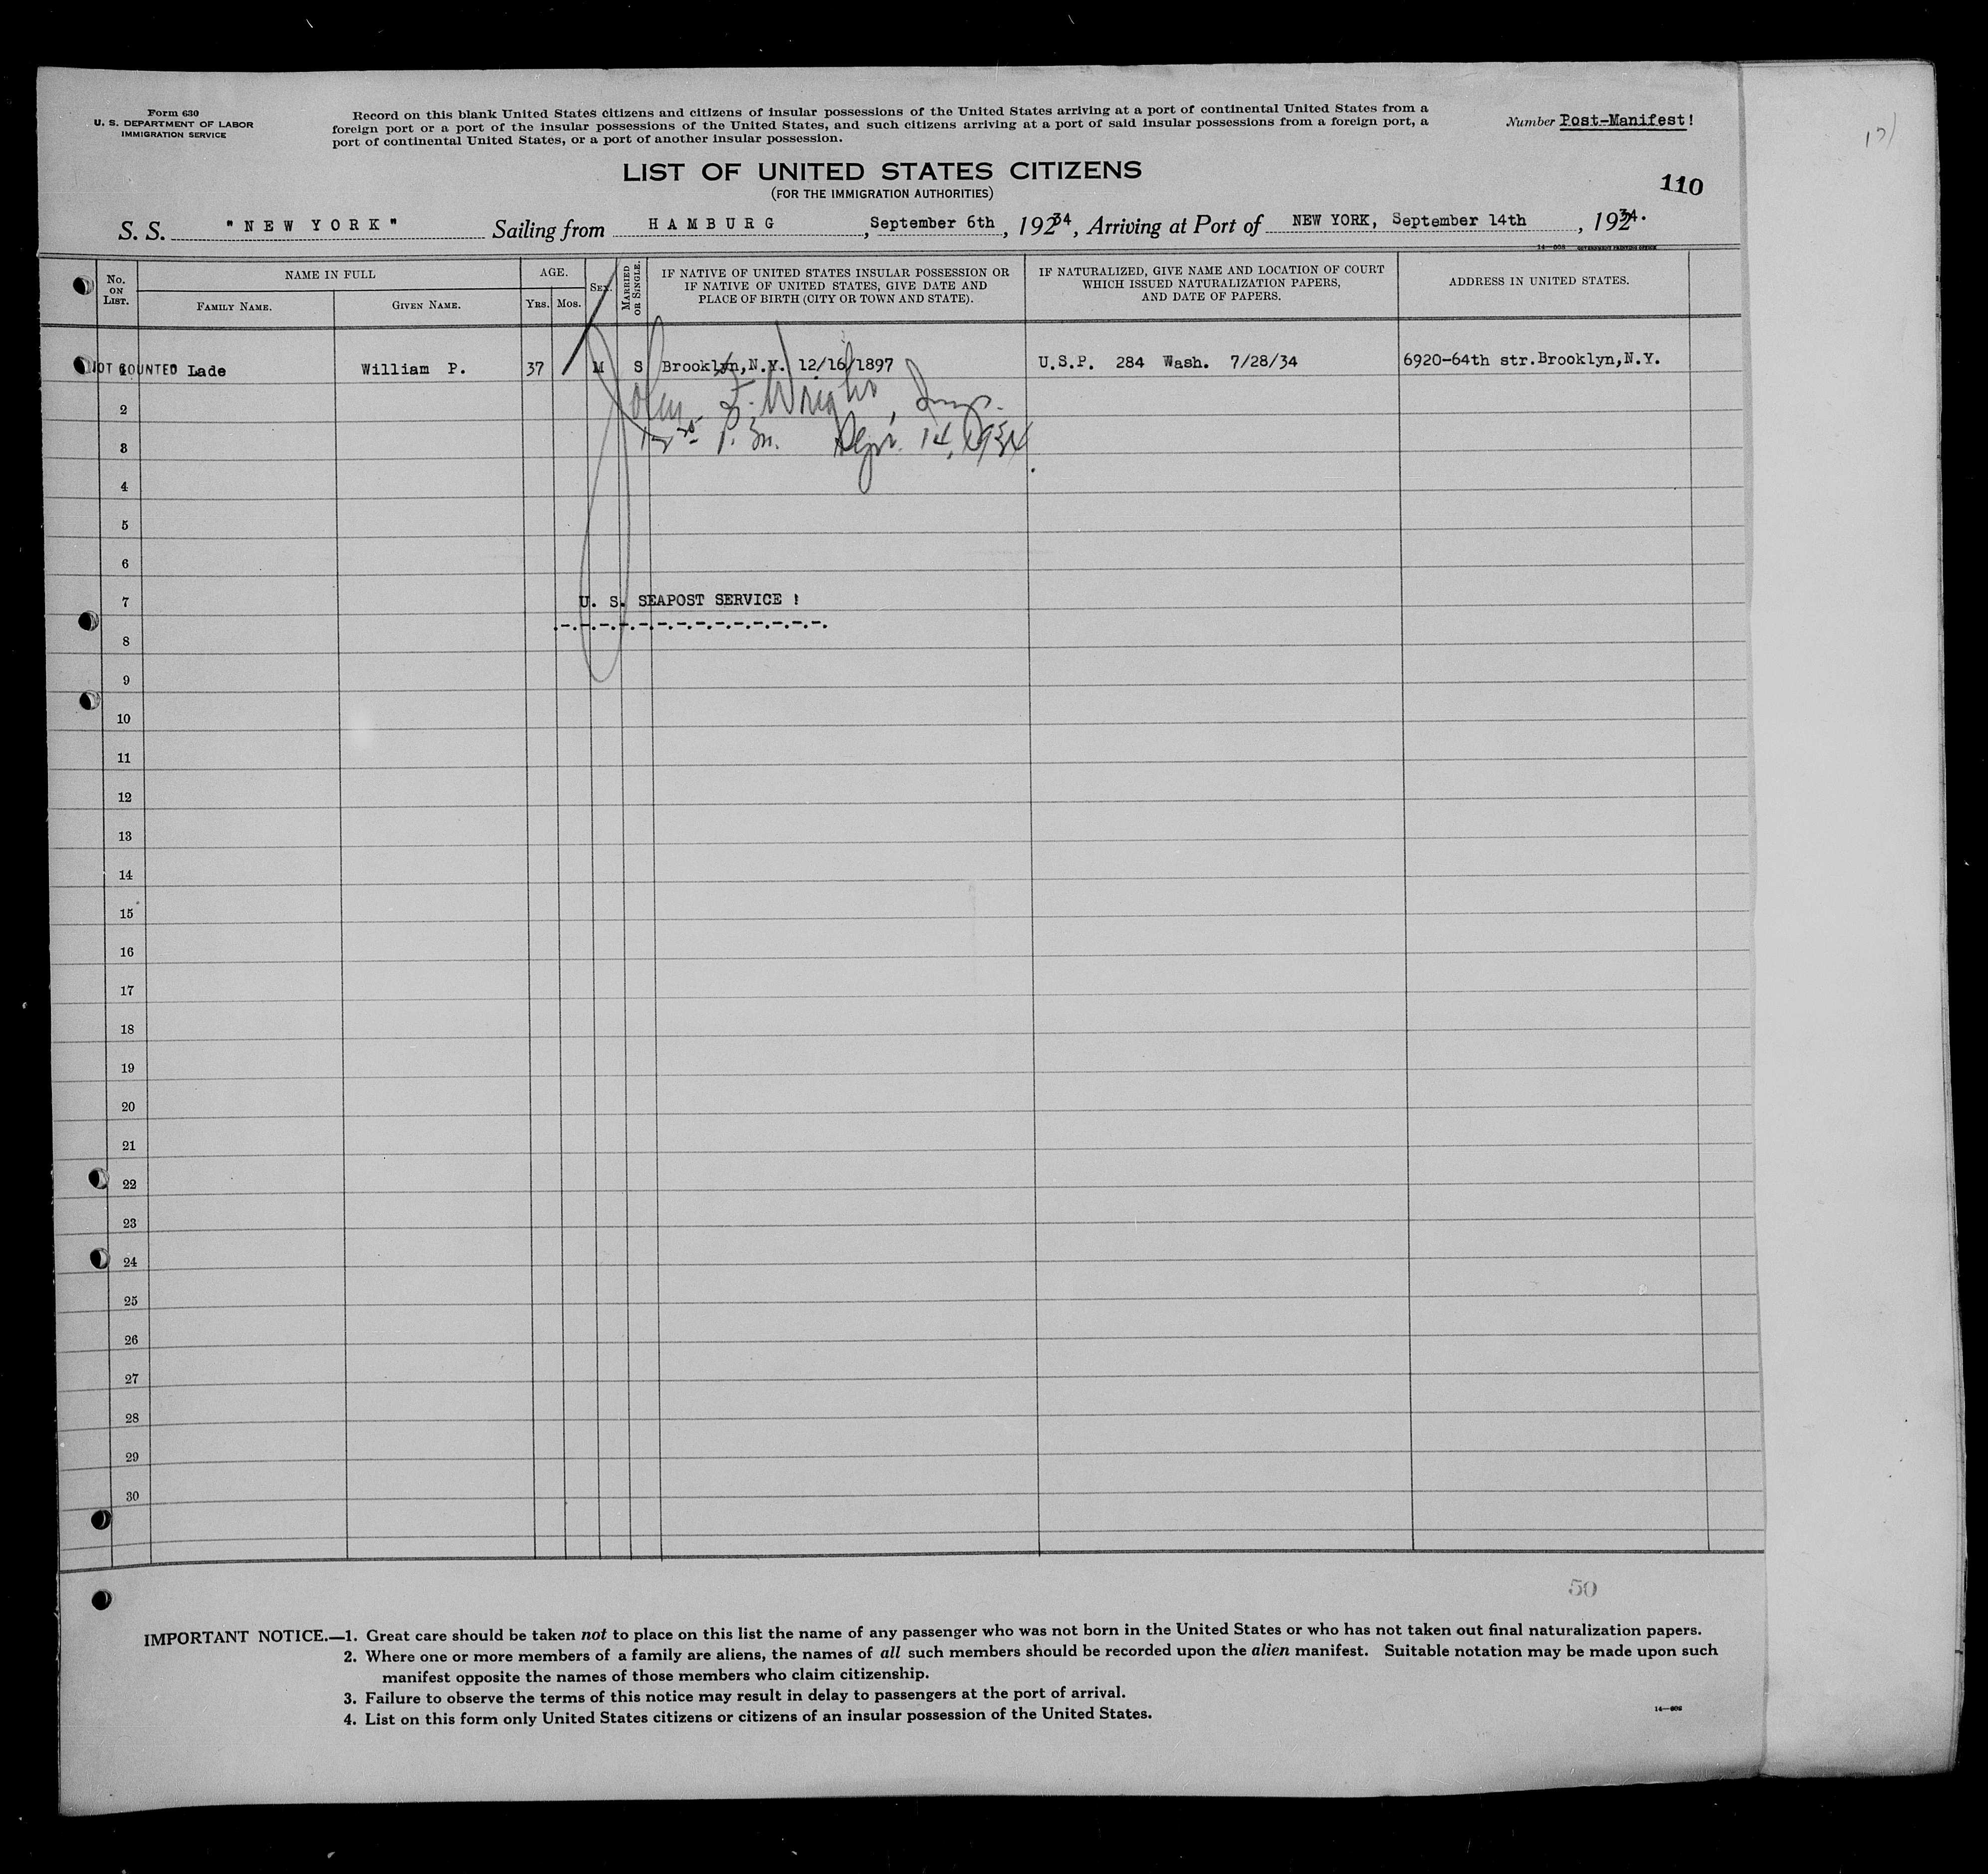 Form 630
U. S. DEPARTMENT OF LABOR
IMMIGRATION SERVICE
Record on this blank United States citizens and citizens of insular possessions of the United States arriving at a port of continental United States from a
foreign port or a port of the insular possessions of the United States, and such citizens arriving at a port of said insular possessions from a foreign port, a
port of continental United States, or a port of another insular possession.
Number Post-Manifest!
LIST OF UNITED STATES CITIZENS
(FOR THE IMMIGRATION AUTHORITIES)
110
S. S. "NEW YORK" Sailing from HAMBURG, September 6th, 19234, Arriving at Port of NEW YORK, September 14th, 1934.
No. ON LIST. NAME IN FULL AGE. SEX. MARRIED OR SINGLE. IF NATIVE OF UNITED STATES INSULAR POSSESSION OR IF NATIVE OF UNITED STATES, GIVE DATE AND PLACE OF BIRTH (CITY OR TOWN AND STATE). IF NATURALIZED, GIVE NAME AND LOCATION OF COURT WHICH ISSUED NATURALIZATION PAPERS, AND DATE OF PAPERS. ADDRESS IN UNITED STATES.
FAMILY NAME. GIVEN NAME. Yrs. Mos.
NOT COUNTED 1 Lade William P. 37 M S Brooklyn,N.Y. 12/16/1897 U.S.P. 284 Wash. 7/28/34 6920-64th str.Brooklyn,N.Y.
John F. Wright, Insp.
2
P.M. Sept. 14, 1934
3
4
5
6
7 U. S. SEAPOST SERVICE !
8
9
10
11
12
13
14
15
16
17
18
19
20
21
22
23
24
25
26
27
28
29
30
50
IMPORTANT NOTICE.—1. Great care should be taken not to place on this list the name of any passenger who was not born in the United States or who has not taken out final naturalization papers.
2. Where one or more members of a family are aliens, the names of all such members should be recorded upon the alien manifest. Suitable notation may be made upon such
manifest opposite the names of those members who claim citizenship.
3. Failure to observe the terms of this notice may result in delay to passengers at the port of arrival.
4. List on this form only United States citizens or citizens of an insular possession of the United States.